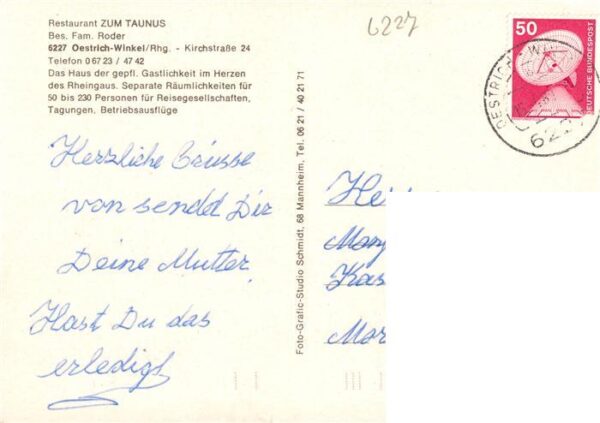 Restaurant ZUM TAUNUS
Bes. Fam. Roder
6227 Oestrich-Winkel/Rhg. - Kirchstraße 24
Telefon 0 67 23 / 47 42
Das Haus der gepfl. Gastlichkeit im Herzen
des Rheingaus. Separate Räumlichkeiten für
50 bis 230 Personen für Reisegesellschaften,
Tagungen, Betriebsausflüge
6227
50
DEUTSCHE BUNDESPOST
OESTRICH-W
622
Herzliche Grüsse
von sendet Dir
Deine Mutter
Hast Du das
erledigt
Foto-Grafic-Studio Schmidt, 68 Mannheim, Tel. 06 21 / 40 21 71
He
Mar
Kas
Mar